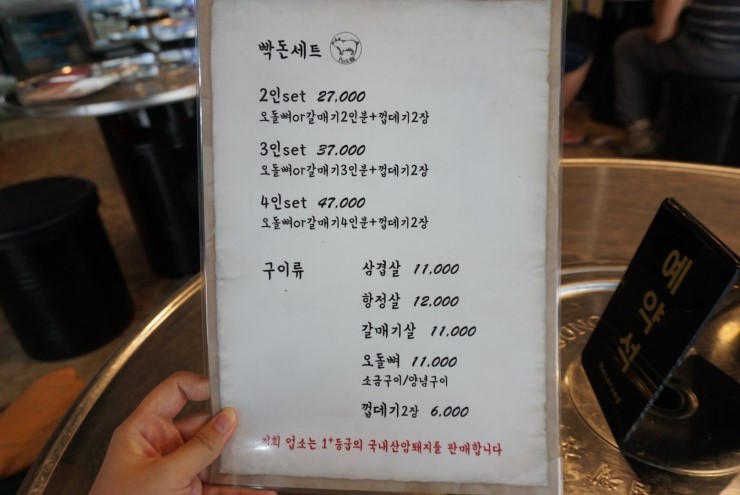 빡돈세트
Pork
2인set 27.000
오돌뼈or갈매기2인분+껍데기2장
3인set 37.000
오돌뼈or갈매기3인분+껍데기2장
4인set 47.000
오돌뼈or갈매기4인분+껍데기2장
구이류
삼겹살 11.000
항정살 12.000
갈매기살 11.000
오돌뼈 11.000
소금구이/양념구이
껍데기2장 6.000
저희 업소는 1+등급의 국내산암퇘지를 판매합니다
예약석